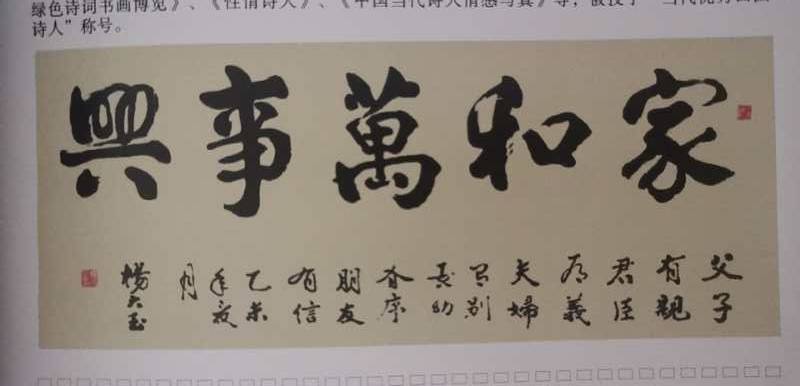 绿色诗词书画博览》、《性情诗人》、《中国当代诗人情感写真》等，被授予“当代优秀
诗人”称号。
家和萬事興
父子
有親
君臣
有義
夫婦
有别
長幼
有序
朋友
有信
乙未
年夏
月
楊玉